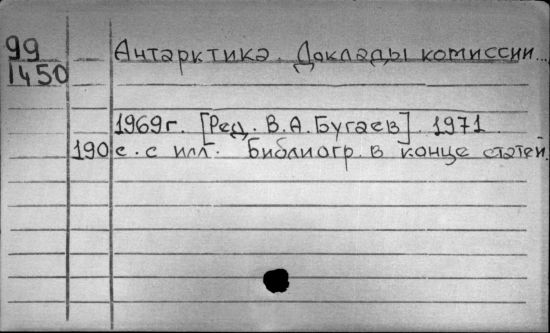 99 Антарктика. Доклады комиссии...
1450
1969г. [Ред. В.А.Бугаев]. 1971.
190 с. с илл. Библиогр. в конце статей.